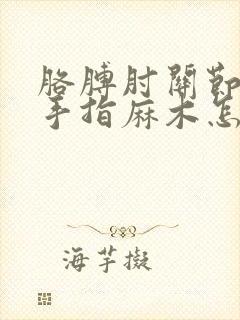 胳膊肘關節
手指麻木怎
海芋擬